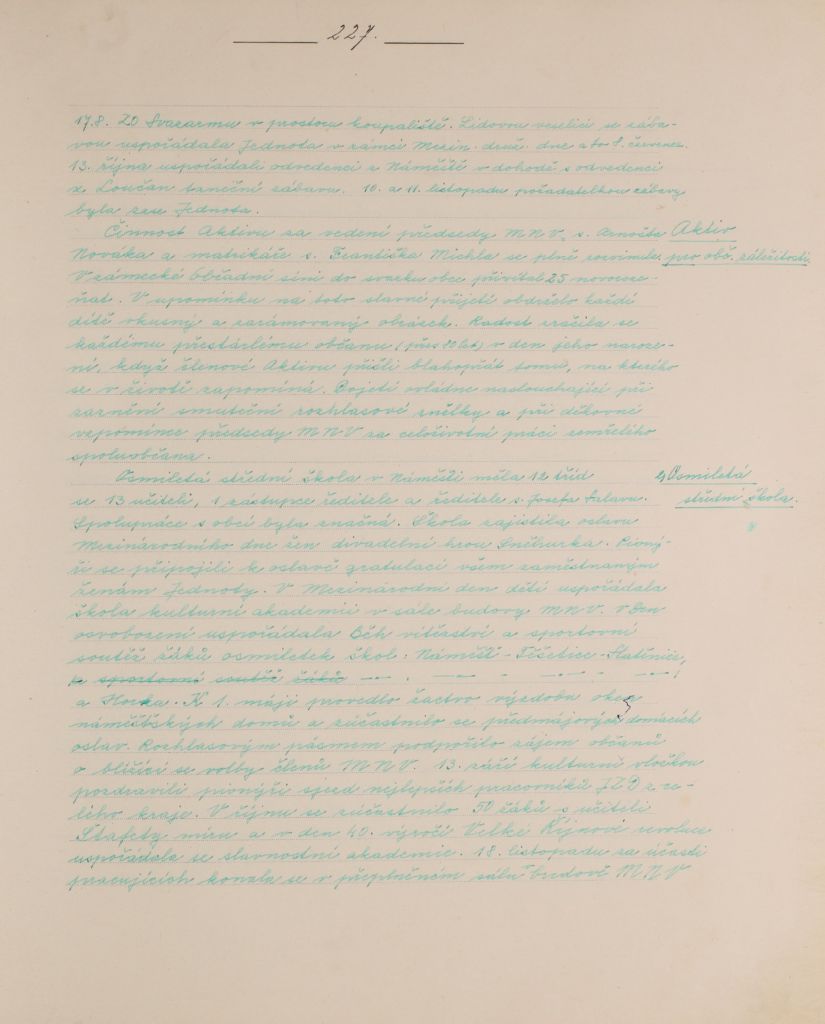 227.
17.8. ZO Svazarmu v prostoru koupaliště. Lidovou veselici se zába-
vou uspořádala Jednota v rámci Mezin. druž. dne a to 8. července.
13. října uspořádali odvedenci z Náměště v dohodě s odvedenci
z Loučan taneční zábavu. 10. a 11. listopadu pořadatelkou zábavy
byla zase Jednota.
Činnost Aktivu za vedení předsedy MNV s. Arnošta
Aktiv
Nováka a matrikáře s. Františka Michla se plně rozvinula.
pro obč. záležitosti.
V zámecké obřadní síni do svazku obce přivítal 25 novoroze-
ňat. V upomínku na toto slavné přijetí obdrželo každé
dítě vkusný a zarámovaný obrázek. Radost zračila se
každému přestárlému občanu (přes 80 let) v den jeho naroze-
ní, když členové Aktivu přišli blahopřát tomu, na kterého
se v životě zapomíná. Dojetí ovládne naslouchající při
zaznění smuteční rozhlasové znělky a při děkovné
vzpomínce předsedy MNV za celoživotní práci zemřelého
spoluobčana.
Osmiletá střední škola v Náměšti měla 12 tříd
Osmiletá
se 13 učiteli, 1 zástupce ředitele a ředitele s. Josefa
střední škola.
Spolupráce s obcí byla značná. Škola zajistila oslavu
Mezinárodního dne žen divadelní hrou Sněhurka. Pioný-
ři se připojili k oslavě gratulací všem zaměstnaným
ženám Jednoty. V Mezinárodní den dětí uspořádala
škola kulturní akademii v sále budovy MNV. V Den
osvobození uspořádala Běh vítězství a sportovní
soutěž žáků osmiletek škol: Náměšť - Těšetice - Slatinice,
a sportovní soutěž žáků
a Horka. K 1. máji provedlo žactvo výzdobu oken
náměšťských domů a zúčastnilo se předmájových domácích
oslav. Rozhlasovým pásmem podpořilo zájem občanů
o blížící se volby členů MNV. 13. září kulturní vložkou
pozdravili pionýři sjezd nejlepších pracovníků JZD z ce-
lého kraje. V říjnu se zúčastnilo 50 žáků s učiteli
Štafety míru a v den 40. výročí Velké Říjnové revoluce
uspořádala se slavnostní akademie. 18. listopadu za účasti
pracujících konala se v přeplněném sálu budově MNV